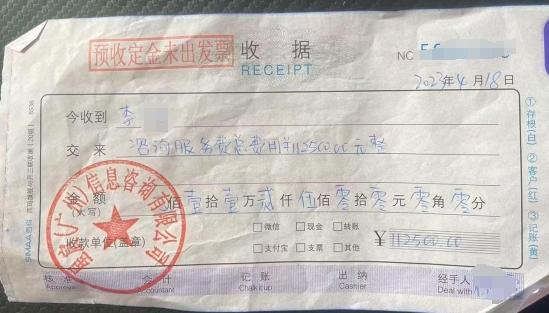 预收定金未出发票 收据 NC 5
RECEIPT
2023年4月18日
今收到 李
交来 咨询服务费总费用¥112500.00元整
金额 佰壹拾壹万贰仟伍佰零拾零元零角零分
(大写)
收款单位(盖章) 微信 现金 转账 ¥112500.00
支付宝 支票 其他
核准 会计 记账 出纳 经手人
Approval Accountant Chalk it up Cashier Deal with
(广州)信息咨询有限公司
①存根(白) ②客户(红) ③记账(黄)
SIMAA